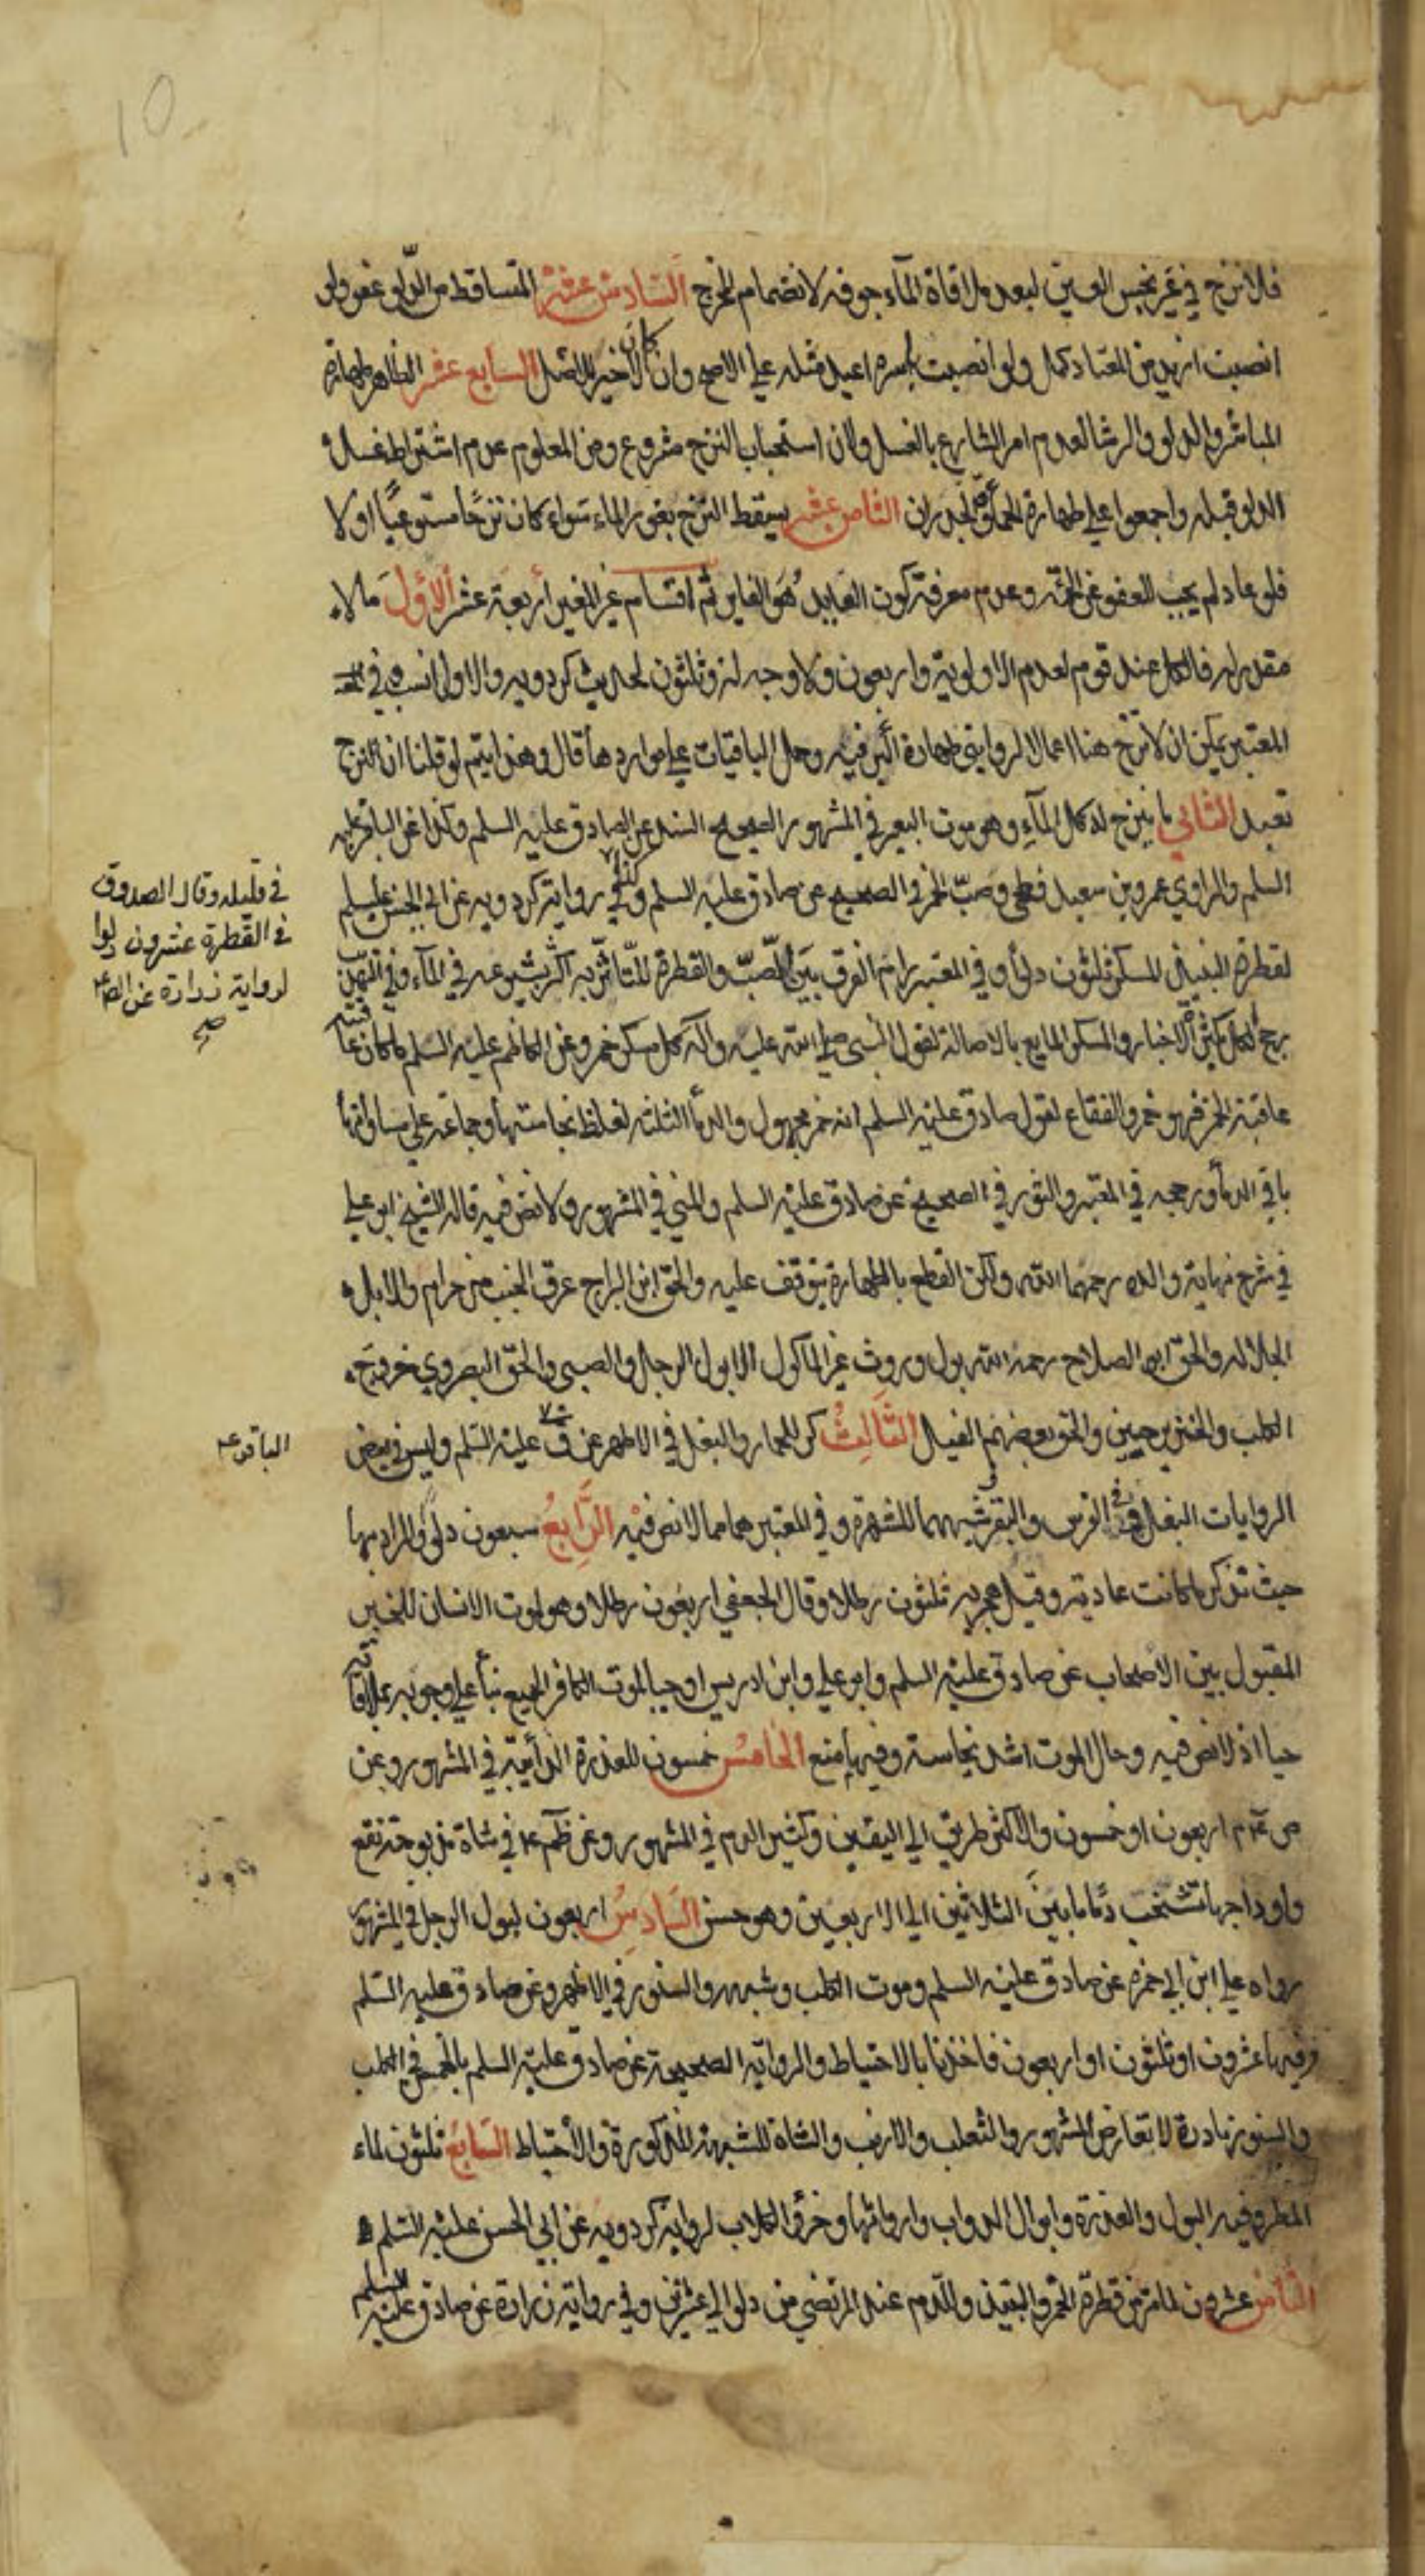 10
فلا نزح في غير نجس العين لبعد ملاقاة المآء جوفه لانضمام المخرج السادس عشر المتساقط من الدلو عفو ولو
انصبت ازيد من المعتاد كمل ولو انصبت باسره اعيد مثله علي الاصح وان كان الاخير للاصل السابع عشر الظاهر طهارة
المباشر والدلو والرشا لعدم امر الشارع بالغسل ولان استحباب النزح مشروع ومن المعلوم عدم اشتراط غسل
الدلو قبله واجمعوا علي طهارة الحمأة والجدران الثامن عشر يسقط النزح بغور الماء سواء كان نزحًا مستوعبًا او لا
فلو عاد لم يجب للعفو عن الحمأة وعدم معرفة كون العايد هو الغاير ثم اقسام غير المغير أربعة عشر الاول ما لا
مقدر له فالكل عند قوم لعدم الاولوية واربعون ولا وجه له وثلثون لحديث كردويه والاولي انسب وفي
المعتبر يمكن ان لا نزح هنا اعمالا لروايتي طهارة البئر فيه وحمل الباقيات علي مواردها قال وهذا يتم لو قلنا ان النزح
تعبد الثاني ما ينزح له كل المآء وهو موت البعير في المشهور الصحيح السند عن الصادق عليه السلم وكذا عن الباقر عليه
السلم والراوي عمرو بن سعيد فطحي وصبّ الخمر في الصحيح عن صادق عليه السلم وكذا في رواية كردويه عن ابي الحسن عليه السلم
لقطرة النبيذ المسكر ثلثون دلوًا وفي المعتبر رام الفرق بين الصبّ والقطرة للتّاثّر به اكثر بشيوعه في المآء وفي التهذيب
رجح الكل بكثرة الاخبار والمسكر المايع بالاصالة لقول النبي صلي الله عليه وآله كل مسكر خمر وعن الكاظم عليه السلم ما كان عاقبته
عاقبة الخمر فهو خمر والفقاع لقول صادق عليه السلم انه خمر مجهول والدمآ الثلثة لغلظ نجاستها وجماعة علي مساواتها
باقي الدمآ ورجحه في المعتبر والثور في الصحيح عن صادق عليه السلم والمني في المشهور ولا نص فيه قاله الشيخ ابو علي
في شرح نهاية والده رحمهما الله ولكن القطع بالطهارة يتوقف عليه والحق ابن البراج عرق الجنب من حرام والابل
الجلالة والحق ابو الصلاح رحمه الله بول وروث غير الماكول الا بول الرجل والصبي والحق البصروي خروج
الكلب والخنزير حيين والحق بعضهم الفيل الثالث كر للحمار والبغل في الاظهر عن ق عليه السّلم وليس في بعض
الروايات البغل وفي الفرس والبقر شبههما للشهرة وفي المعتبر هما مما لا نص فيه الرابع سبعون دلوًا والمراد بها
حيث تذكر ما كانت عادية وقيل هجرية ثلثون رطلا وقال الجعفي اربعون رطلا وهو لموت الانسان للخبر
المقبول بين الاصحاب عن صادق عليه السلم وابو علي وابن ادريس اوجبا لموت الكافر الجميع بنآ علي وجوبه بملاقاته
حيا اذ لا نص فيه وحال الموت اشد نجاسة وفيهما منع الخامس خمسون للعذرة الذآئبة في المشهور وعن
ص م اربعون او خمسون والاكثر طريق الي اليقين وكثير الدم في المشهور وعن ظم في شاة مذبوحة تقع
واوداجها تشخب دمًا ما بين الثلاثين الي الاربعين وهو حسن السادس اربعون لبول الرجل في المشهور
رواه علي ابن ابي حمزة عن صادق عليه السلم وموت الكلب وشبهه والسنور في الاظهر وعن صادق عليه السّلم
وفيها عشرون او ثلثون او اربعون فاخذنا بالاحتياط والرواية الصحيحة عن صادق عليه السلم بالخمس في الكلب
والسنور نادرة لا تعارض المشهور والثعلب والارنب والشاة للشبهة المذكورة والاحتياط السابع ثلثون لماء
المطر وفيه البول والعذرة وابوال الدواب وارواثها وخرؤ الكلاب لرواية كردويه عن ابي الحسن عليه السّلم
الثامن عشرون للمترمن قطرة الخمر والنبيذ والدم عند المرتضي من دلو الي عشرين وفي رواية زرارة عن صادق عليه السلم
في قليله وقال الصدوق
في القطرة عشرون دلوا
لرواية زرارة عن الص ع
صح
الباقر ع